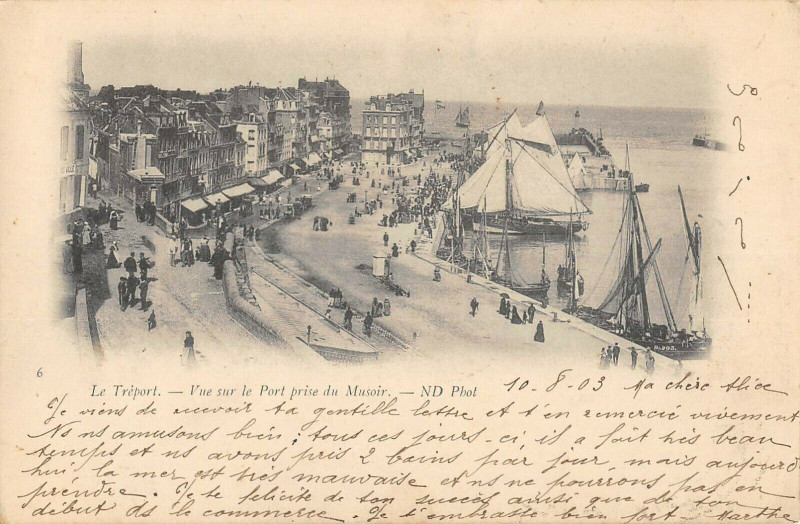 6
Le Tréport. — Vue sur le Port prise du Musoir. — ND Phot
10-8-03 Ma chère Alice
Je viens de recevoir ta gentille lettre et t'en remercie vivement
Ns ns amusons bien ; tous ces jours-ci, il a fait très beau
temps et ns avons pris 2 bains par jour, mais aujourd'
hui la mer est très mauvaise et ns ne pourrons pas en
prendre. Je te felicite de ton succès ainsi que de ton
début ds le commerce. Je t'embrasse bien fort. Marthe